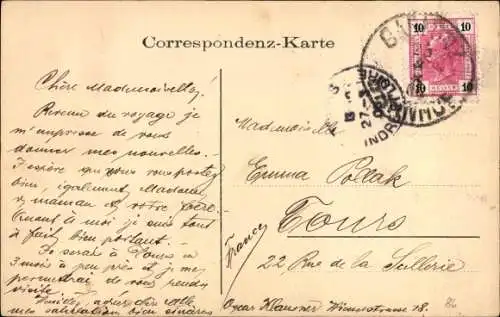 Correspondenz-Karte
10 10
10 10
27
INDRE
Chère Mademoiselle,
Revenu du voyage je
m'empresse de vous
donner mes nouvelles.
J'espère que vous vous portez
bien, également Madame
v. maman et votre
Quant à moi je suis tout
à fait bien portant.
Je serai à Tours in
3 mois à peu près et je me
permettrai de vous rendre
visite.
mes salutations bien sincères
Mademoiselle
Emma Pollak
Tours
22 Rue de la Sellerie
France
Oscar Klausner Wienerstrasse 18.